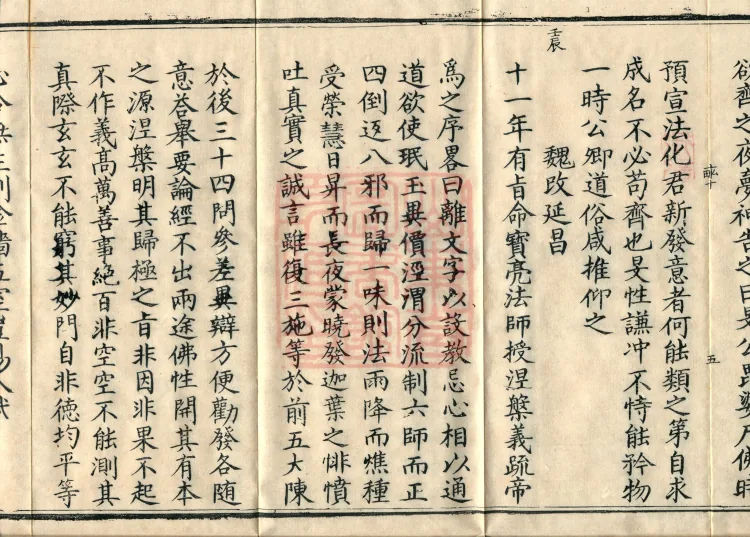 欲齊之夜夢神告之曰旻公毗婆尸佛時
五
預宣法化君新發意者何能類之第自求
成名不必苟齊也旻性謙沖不恃能矜物
一時公卿道俗咸推仰之
魏改延昌
壬辰
十一年有旨命寶亮法師授涅槃義疏帝
爲之序畧曰離文字以設教忘心相以通
道欲使珉玉異價涇渭分流制六師而正
四倒返八邪而歸一味則法雨降而燋種
受榮慧日昇而長夜蒙曉發迦葉之悱憤
吐真實之誠言雖復三施等於前五大陳
於後三十四問參差異辯方便勸發各隨
意荅舉要論經不出兩途佛性開其有本
之源涅槃明其歸極之旨非因非果不起
不作義高萬善事絕百非空空不能測其
真際玄玄不能窮其妙門自非德均平等
心合無生則金牆玉室豈易入哉